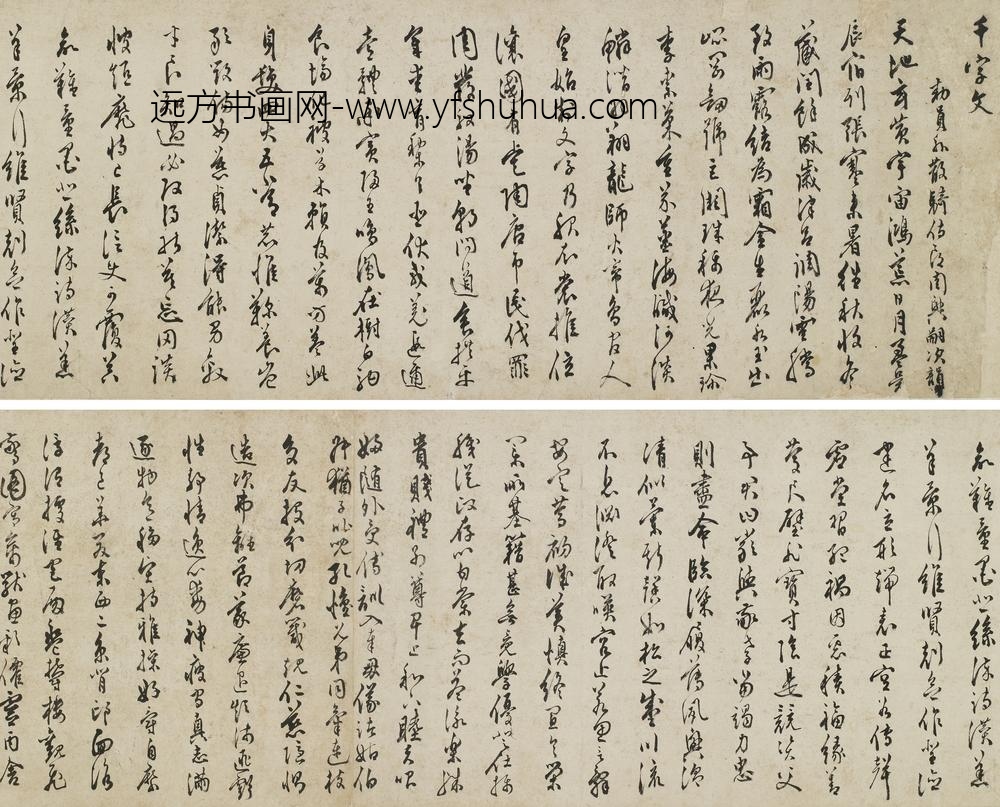 千字文
勅員外散騎侍郎周興嗣次韻
天地玄黃宇宙鴻荒日月盈昃
辰宿列張寒來暑往秋收冬
藏閏餘成歲律呂調陽雲騰
致雨露結為霜金生麗水玉出
崑崗劍號巨闕珠稱夜光果珍
李柰菜重芥薑海鹹河淡
鱗潛羽翔龍師火帝鳥官人
皇始制文字乃服衣裳推位
讓國有虞陶唐弔民伐罪
周發殷湯坐朝問道垂拱平
章愛育黎首臣伏戎羌遐邇
壹體率賓歸王鳴鳳在樹白駒
食場化被草木賴及萬方蓋此
身髮四大五常恭惟鞠養豈
敢毀傷女慕貞潔得能男效
才良知過必改得能莫忘罔談
彼短靡恃己長信使可覆器
欲難量墨悲絲染詩讚羔
羊景行維賢剋念作聖德
欲難量墨悲絲染詩讚羔
羊景行維賢剋念作聖德
建名立形端表正空谷傳聲
虛堂習聽禍因惡積福緣善
慶尺璧非寶寸陰是競資父
事君曰嚴與敬孝當竭力忠
則盡命臨深履薄夙興溫
清似蘭斯馨如松之盛川流
不息淵澄取暎容止若思言辭
安定篤初誠美慎終宜令榮
業所基籍甚無竟學優登仕攝
職從政存以甘棠去而益詠樂殊
貴賤禮別尊卑上和下睦夫唱
婦隨外受傅訓入奉母儀諸姑伯
叔猶子比兒孔懷兄弟同氣連枝
交友投分切磨箴規仁慈隱惻
造次弗離節義廉退顛沛匪虧
性靜情逸心動神疲守真志滿
逐物意移堅持雅操好爵自縻
都邑華夏東西二京背邙面洛
浮渭據涇宮殿盤鬱樓觀飛
驚圖寫禽獸畫彩僊靈丙舍
远方书画网-www.yfshuhua.com